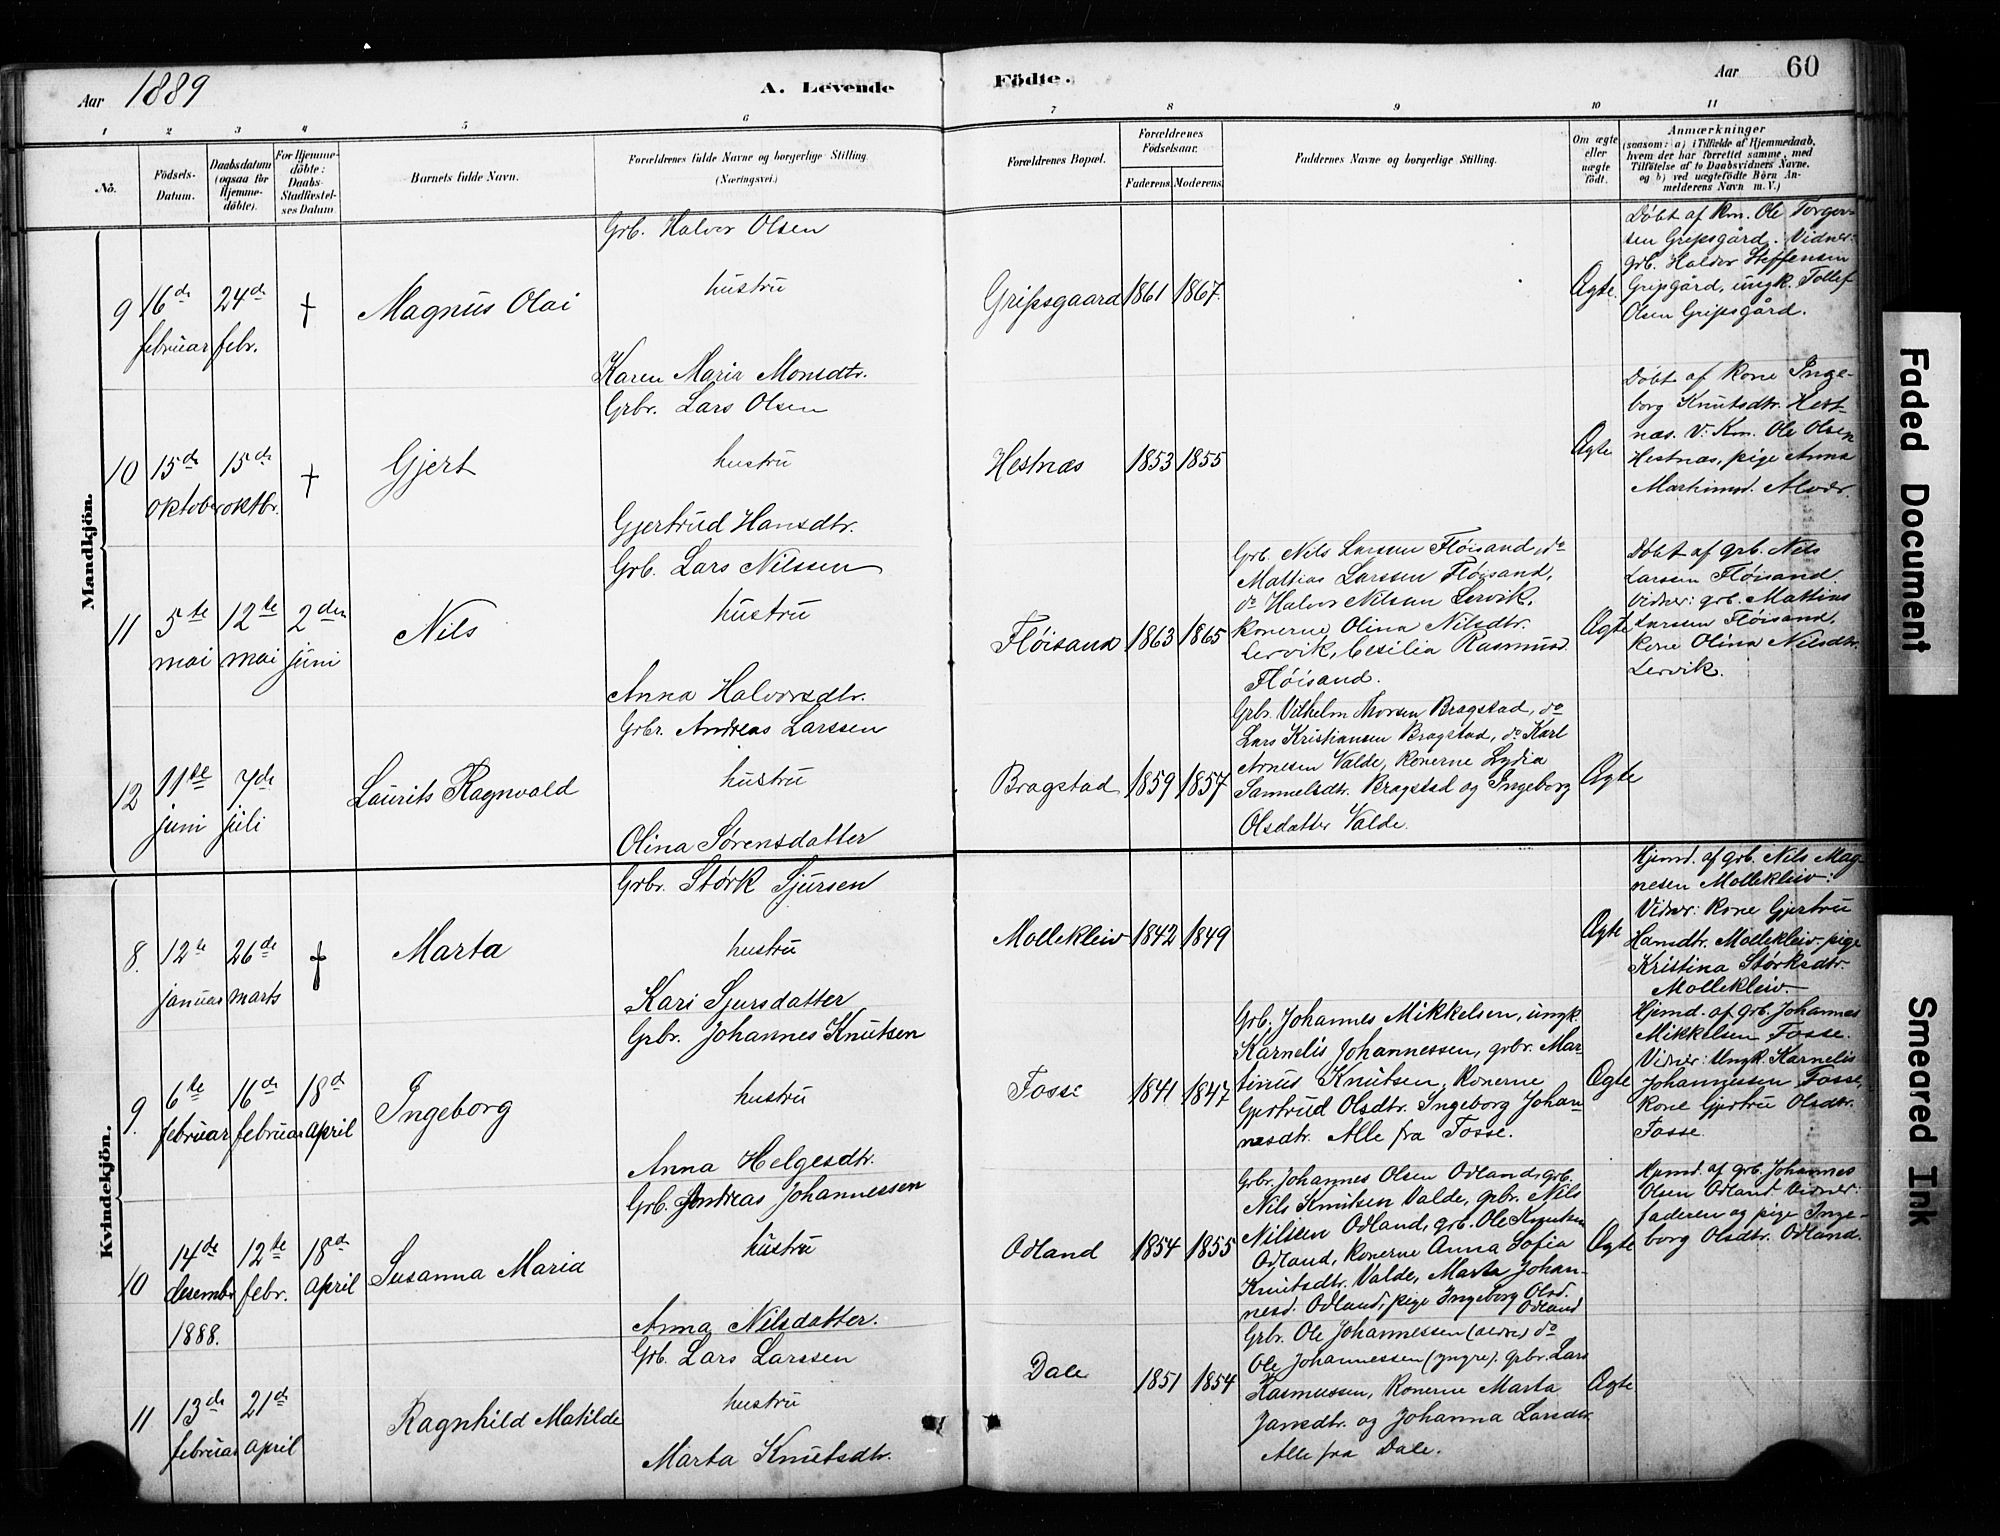 Aar 1889
A. Levende
Födte.
Aar 60
1 2 3 4 5 6 7 8 9 10 11
No.
Födsels-
Datum.
Daabsdatum
(ogsaa for
Hjemme-
döbte).
For Hjemme-
döbte:
Daabs-
Stadfæstel-
ses Datum
Barnets fulde Navn.
Forældrenes fulde Navne og borgerlige Stilling
(Næringsvei.)
Forældrenes Bopæl.
Forældrenes
Födselsaar.
Faderens.
Moderens.
Faddernes Navne og borgerlige Stilling.
Om ægte
eller
uægte
födt.
Anmærkninger
(saasom: a) i Tilfælde af Hjemmedaab,
hvem der har forrettet samme, med
Tilföielse af to Daabsvidners Navne,
og b) ved uægtefödte Börn An-
melderens Navn m. V.)
Mandkjön.
9
16de
februar
24de
febr.
†
Magnus Olai
Grb. Halvor Olsen
hustru
Karen Maria Monsdtr.
Gripsgaard
1861
1867
Ægte.
Döbt af Km. Ole Torger-
sen Gripsgård. Vidner:
grb. Haldor Steffensen
Gripgård, ungk. Tollef
Olsen Gripsgård.
10
15de
oktober
15de
oktbr.
†
Gjert
Grbr. Lars Olsen
hustru
Gjertrud Hansdtr.
Hestnæs
1853
1855
Ægte
Döbt af Kone Inge-
borg Knutsdtr. Hest-
næs. V: Km. Ole Olsen
Hestnæs, pige Anna
Martinusd. Alver.
11
5te
mai
12te
mai
2den
juni
Nils
Grb. Lars Nilssen
hustru
Anna Halvorsdtr.
Flöisand
1863
1865
Grb. Nils Larssen Flöisand, do
Mattias Larssen Flöisand,
do Halvor Nilsen Lervik,
konerne Olina Nilsdtr.
Lervik, Cesilia Rasmusd.
Flöisand.
Ægte
Döbt af grb. Nils
Larssen Flöisand.
Vidner: grb. Mattias
Larssen Flöisand,
Kone Olina Nilsdtr.
Lervik.
12
11te
juni
7de
juli
Laurits Ragnvald
Grbr. Andreas Larssen
hustru
Olina Sørensdatter
Bragstad
1859
1857
Grbr. Vilhelm Monsen Bragstad, do
Lars Kristiansen Bragstad, do Karl
Arnesen Valde, Konerne Lydia
Samuelsdtr. Bragstad og Ingeborg
Olsdatter Valde.
Ægte
Kvindekjön.
8.
12te
januar
26de
marts
†
Marta
Grbr. Størk Sjursen
hustru
Kari Sjursdatter
Mollekleiv
1842
1849
Ægte
Hjemd. af grb. Nils Mag-
nesen Mollekleiv:
Vidner: Kone Gjertru
Hansdtr. Mollekleiv pige
Kristina Størksdtr.
Mollekleiv.
9.
6te
februar
16de
februar
18d
april
Ingeborg
Grbr. Johannes Knutsen
hustru
Anna Helgesdtr.
Fosse
1841
1847
Grb. Johannes Mikkelsen, ungk.
Karnelis Johannessen, grbr. Mar-
tinus Knutsen, Konerne
Gjertrud Olsdtr. Ingeborg Johan-
nesdtr. Alle fra Fosse.
Ægte
Hjemd. af grb. Johannes
Mikkelsen Fosse.
Vidner: Ungk. Karnelis
Johannessen Fosse,
Kone Gjertru Olsdtr.
Fosse.
10
14de
desembr
1888.
12te
febr.
18d
april
Susanna Maria
Grb. Andreas Johannessen
hustru
Anna Nilsdatter.
Odland
1854
1855
Grbr. Johannes Olsen Odland, grb.
Nils Knutsen Valde, grbr. Nils
Nilsen Odland, grb. Ole Knutsen
Odland, Konerne Anna Sofia
Knutsdtr. Valde, Marta Johan-
nesd. Odland, pige Ingeborg Olsd.
Odland
Ægte
Hjemd. af grb. Johannes
Olsen Odland Vidner:
faderen og pige Inge-
borg Olsdtr. Odland.
11
13de
februar
21de
april
Ragnhild Matilde
Grb. Lars Larssen
hustru
Marta Knutsdtr.
Dale
1851
1854
Grbr. Ole Johannessen (ældre) do
Ole Johannessen (yngre). grbr. Lars
Rasmussen, Konerne Marta
Jansdtr. og Johanna Larsdtr.
Alle fra Dale.
Ægte
Faded Document
Smeared Ink